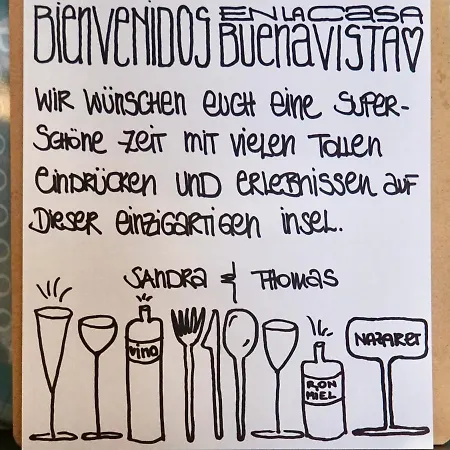 BIENVENIDOS EN LA CASA
BUENAVISTA♡
WIR WÜNSCHEN EUCH EINE SUPER-
SCHÖNE ZEIT MIT VIELEN TOLLEN
EINDRÜCKEN UND ERLEBNISSEN AUF
DIESER EINZIGARTIGEN INSEL.
SANDRA & THOMAS
vino
RON
MIEL
NAZARET